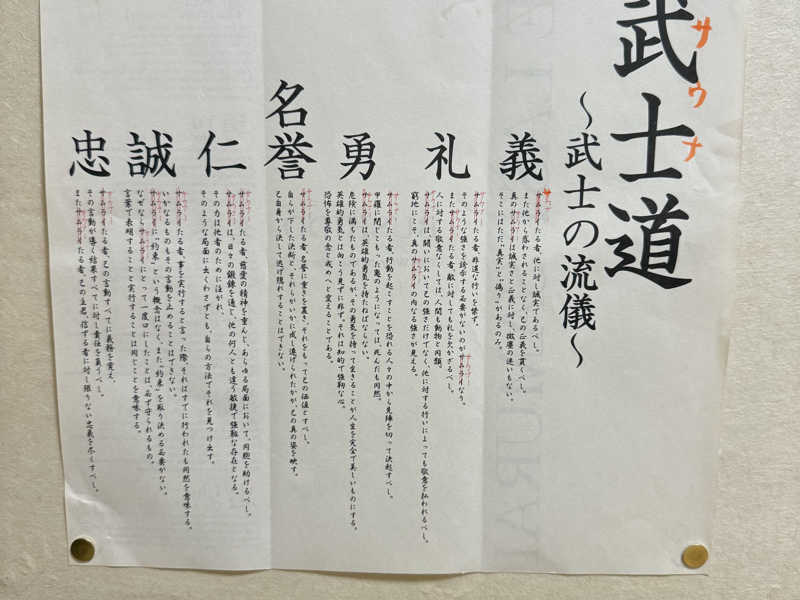 武士道
サウナ
～武士の流儀～
義
サムライたる者、他に対し誠実であるべし。
また他から惑わされることなく、己の正義を貫くべし。
真のサムライは誠実さと正義に対し、微塵の迷いもない。
そこにはただ"真実"と"偽り"があるのみ。
礼
サムライたる者、非道な行いを禁ず。
そのような強さを誇示する必要がないのがサムライなり。
またサムライたる者、敵に対しても礼を欠かするべし。
人に対する敬意なくしては、人間も動物と同類。
サムライは、闘いにおいて己の強さだけでなく、他に対する行いによっても敬意を払われるべし。
窮地にこそ、真のサムライの内なる強さが見える。
勇
サムライたる者、行動を起こすことを恐れる人々の中から先陣を切って決起すべし。
甲羅に閉じこもった亀のようになっては、死んだも同然。
サムライは、英雄的勇気を持たねばならない。
危険に満ちたものであるが、その勇気を持って生きることが人生を完全で美しいものにする。
英雄的勇気とは向こう見ずに非ず。それは知的で強靭な心。
恐怖を尊敬の念と戒めへと変えることである。
名誉
サムライたる者、名誉に重きを置き、それをもって己の価値とすべし。
自らが下した決断と、それらがいかに成し遂げられたかが、己の真の姿を映す。
己自身から決して逃げ隠れすることはできない。
仁
サムライたる者、慈愛の精神を重んじ、あらゆる局面において、同胞を助けるべし。
サムライは、日々の鍛錬を通じ、他の何人とも違う敏捷で強靭な存在となる。
その力は他者のために注がれ、
そのような局面に出くわさずとも、自らの方法でそれを見つけ出す。
誠
サムライたる者、事を実行すると言った際、それはすでに行われたも同然を意味する。
いかなるものもその言動を止めることはできない。
サムライに"約束"という概念はなく、また"約束"を取り決める必要がない。
なぜならサムライにとって一度口にしたことは、必ず守られるもの。
言葉で表明することと実行することは同じことを意味する。
忠
サムライたる者、己の言動すべてに義務を覚え、
その言動が導く結果すべてに対し責任を負うべし。
またサムライたる者、己の主君、信ずる者に対し限りない忠義を尽くすべし。